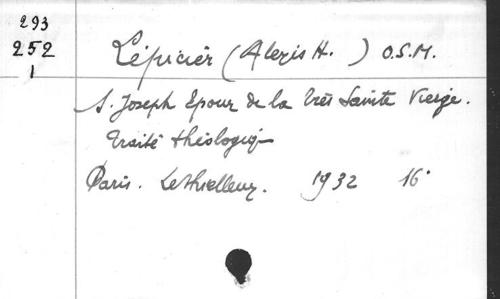 293
252
1
Lépicier (Alexis H. ) O.S.M.
S. Joseph Epoux de la Très Sainte Vierge.
Traité théologiq-
Paris. Lethielleux. 1932 16°